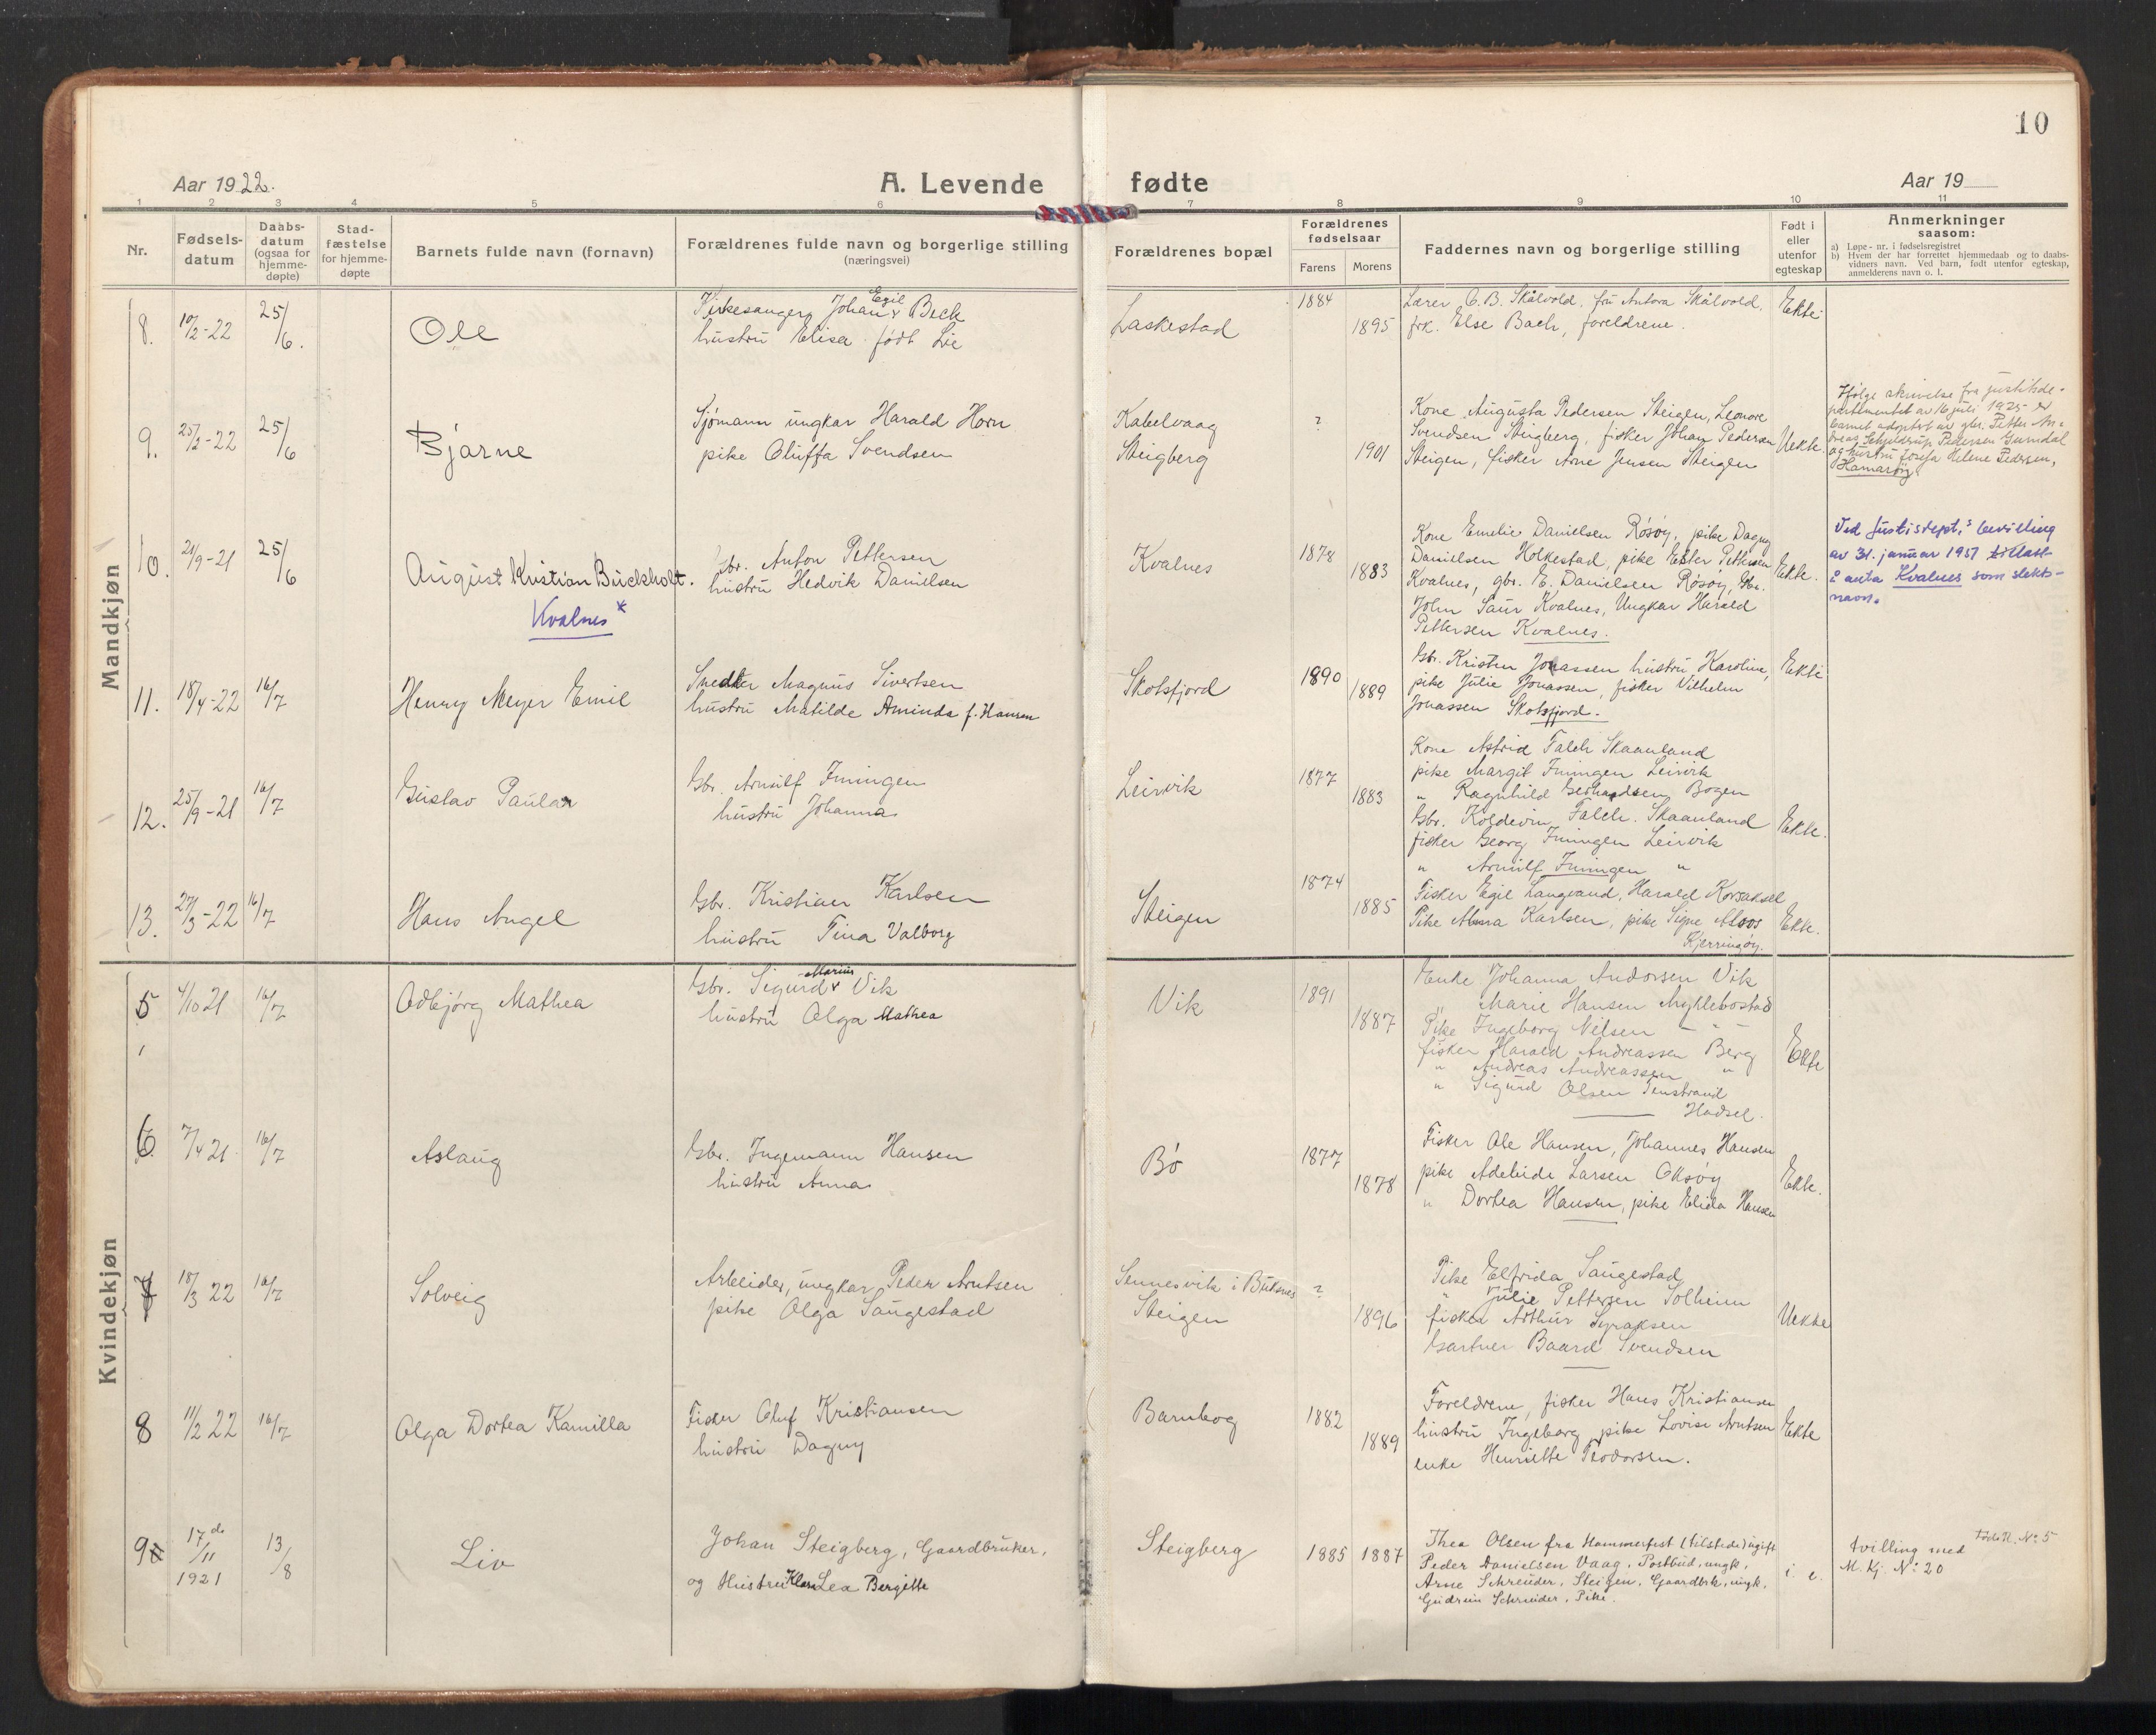 10
Aar 1922.
A. Levende fødte
Aar 19
1 2 3 4 5 6 7 8 9 10 11
Nr.
Fødsels-
datum
Daabs-
datum
(ogsaa for
hjemme-
døpte)
Stad-
fæstelse
for hjemme-
døpte
Barnets fulde navn (fornavn)
Forældrenes fulde navn og borgerlige stilling
(næringsvei)
Forældrenes bopæl
Forældrenes
fødselsaar
Farens Morens
Faddernes navn og borgerlige stilling
Født i
eller
utenfor
egteskap
Anmerkninger
saasom:
a) Løpe-nr. i fødselsregistret
b) Hvem der har forrettet hjemmedaab og to daabs-
vidners navn. Ved barn, født utenfor egteskap,
anmelderens navn o. l.
Mandkjøn
8. 10/2-22 25/6. Ole
Kirkesanger Johan Egil Beck
hustru Elisa født Lie
Laskestad
1884
1895
Lærer C. B. Skålvold. fru Antora Skålvold.
frk. Else Bach, foreldrene.
Ekte
9. 25/2-22 25/6 Bjarne
Sjømann ungkar Harald Horn
pike Oluffa Svendsen
Kabelvaag
Steigberg
?
1901
Kone Augusta Pedersen Steigen, Leonore
Svendsen Steigberg, fisker Johan Pedersen
Steigen, fisker Arne Jensen Steigen
Uekte.
Ifølge skrivelse fra justitsde-
partementet av 16 juli 1925 er
barnet adoptert av gbr. Petter An-
dreas Schjeldrup Pedersen
og hustru Josefa Helene Pedersen,
Hamarøy
10. 21/9-21 25/6
August Kristian Buckholt.
Kvalnes *
Gbr. Anton Pettersen
hustru Hedvik Danielsen
Kvalnes
1878
1883
Kone Emelie Danielsen Røsøy, pike Dagny
Danielsen Holkestad, pike Ester Pettersen
Kvalnes, gbr. E. Danielsen Røsøy, Gbr.
John Saur Kvalnes, Ungkar Harald
Pettersen Kvalnes.
Ekte.
Ved Justisdept.s bevilling
av 31. januar 1951 tillatt
å anta Kvalnes som slekts-
navn.
11. 18/4-22 16/7 Henry Meyer Emil
Snedker Magnus Sivertsen
hustru Matilde Aminda f. Hansen
Skotsfjord
1890
1889
Gbr. Kristen Jonassen hustru Karoline,
pike Julie Jonassen, fisker Vilhelm
Jonassen Skotsfjord.
Ekte
12. 25/9-21 16/7 Gustav Paular
Gbr. Arnulf Iningen
hustru Johanna
Leirvik
1877
1883
Kone Astrid Falch Skaanland
pike Margit Iningen Leirvik
" Ragnhild Gerhardsen Bogen
Gbr. Koldevin Falch. Skaanland
fisker Georg Iningen Leirvik
" Arnulf Iningen "
Ekte.
13. 27/3-22 16/7 Hans Angel
Gbr. Kristian Karlsen
hustru Tina Valborg
Steigen
1874
1885
Fisker Egil Langsand, Harald Korsaksel
Pike Alma Karlsen, pike Signe
Kjerringøy.
Ekte.
Kvindekjøn
5 4/10 21 16/7 Odbjørg Mathea
Gbr. Sigurd Marius Vik
hustru Olga Mathea
Vik
1891
1887
Enke Johanna Andorsen Vik
" Marie Hansen Myklebostad
Pike Ingeborg Nilsen - " -
fisker Harald Andreassen Berg
" Andreas Andreassen "
" Sigurd Olsen
Hadsel.
Ekte
6. 7/4 21 16/7 Aslaug
Gbr. Ingemann Hansen
hustru Anna
Bø
1877
1878
Fisker Ole Hansen, Johannes Hansen
pike Adeleide Larsen Oksøy
" Dortea Hansen, pike Elida Hansen
Ekte.
7 18/3 22 16/7 Solveig
Arbeider, ungkar Peder Arntsen
pike Olga Saugestad
Sennesvik i Buksnes
Steigen
?
1896
Pike Elfrida Saugestad
" Julie Pettersen Solheim
fisker Arthur Syraksen
Gartner Baard Svendsen
Uekte
8 11/2 22 16/7 Olga Dortea Kamilla
Fisker Oluf Kristiansen
hustru Dagny
Barnbog
1882
1889
Foreldrene, fisker Hans Kristiansen
hustru Ingeborg, pike Lovise Arntsen
enke Henriette Teodorsen.
Ekte
9 17de/11 1921 13/8 Liv
Johan Steigberg, Gaardbruker,
og Hustru Klara Lea Bergitte
Steigberg
1885 1887
Thea Olsen fra Hammerfest (tilstede) ugift
Peder Danielsen Vaag, Postbud, ungk,
Arne Schreuder, Steigen, Gaardbrk, ungk,
Gudrun Schreuder, Pike.
i. e.
tvilling med
M. Kj. No 20